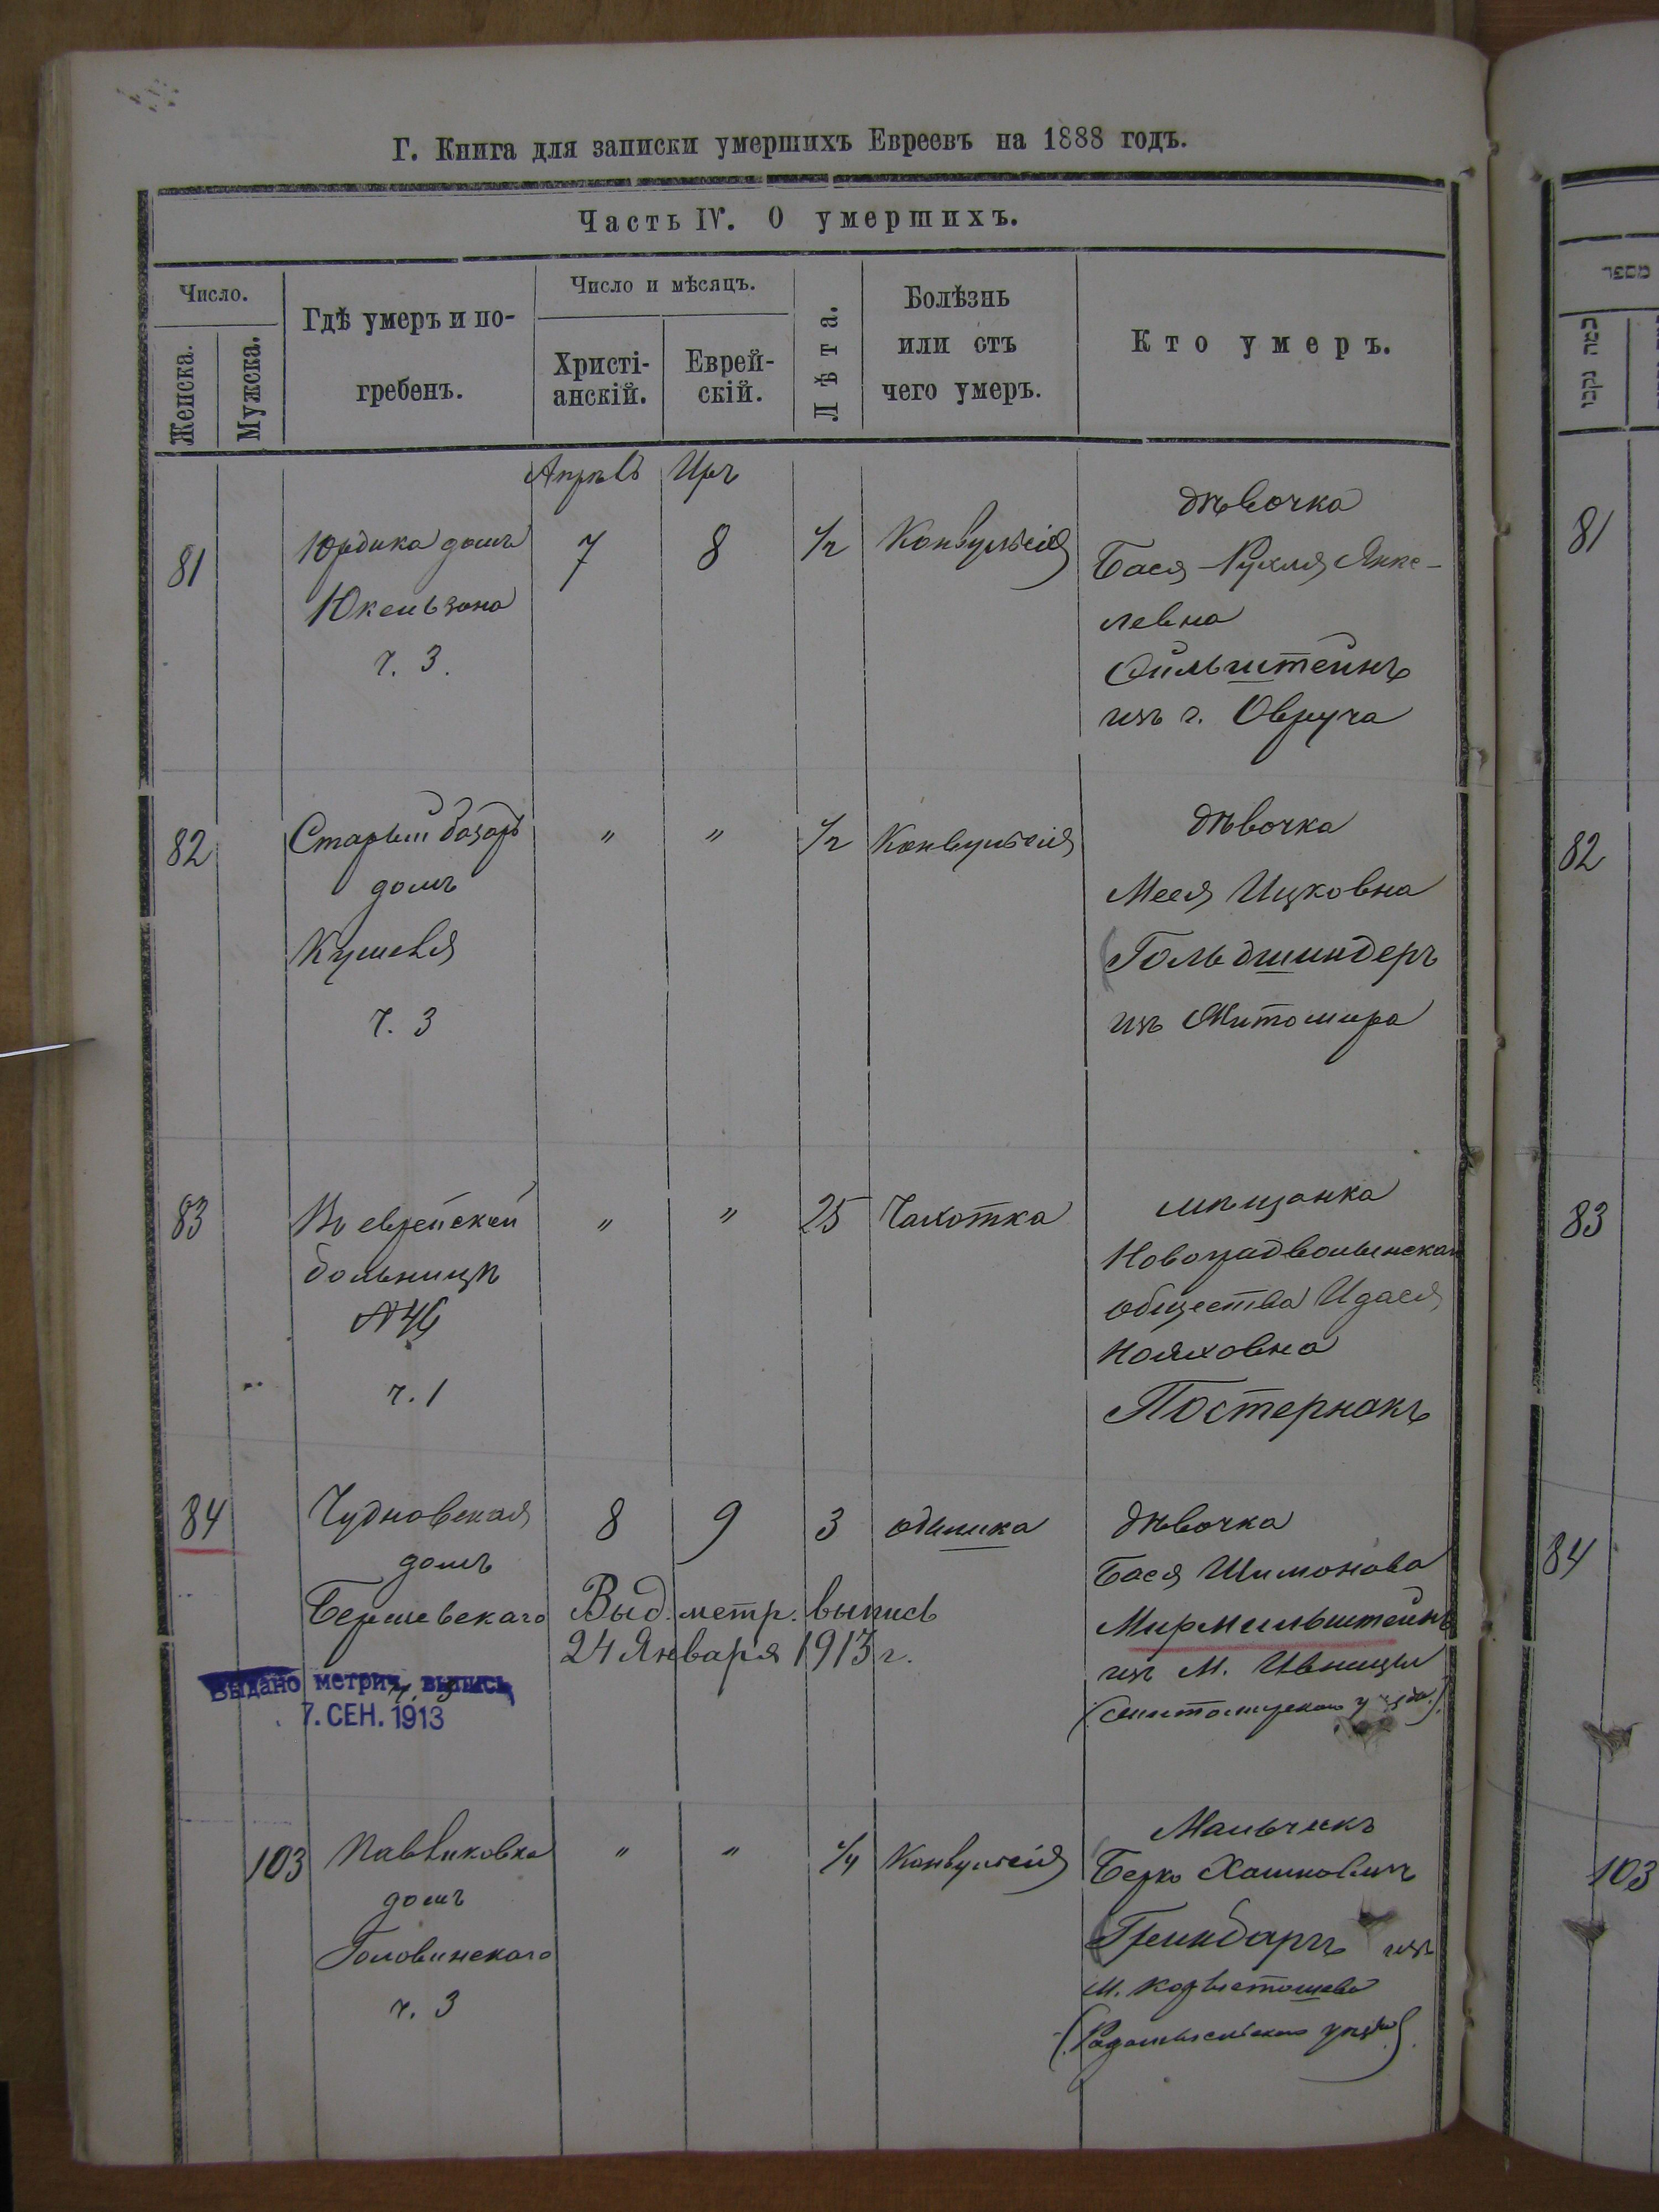 Г. Книга для записки умершихъ Евреевъ на 1888 годъ.
Часть IV. О умершихъ.
Число.
Женска.
Мужска.
Гдѣ умеръ и по-
гребенъ.
Число и мѣсяцъ.
Христі-
анскій.
Еврей-
скій.
Лѣта.
Болѣзнь
или отъ
чего умеръ.
Кто умеръ.
81
Юрдика домъ
Юкельзона
ч. 3.
Апрѣль
7
Иръ
8
1/2
Конвульсія
дѣвочка
Бася-Рухля Янке-
левна
из г. Овруча
82
Старый базаръ
домъ
ч. 3
"
"
1/2
Конвульсія
дѣвочка
Ицковна
Гольдшиндеръ
изъ Житомира
83
Въ еврейской
больницѣ
ч. 1
"
"
25
Чахотка
мѣщанка
Новоградволынскаго
общества Идася
Нояховна
Постернакъ
84
Чудновская
домъ
8
9
3
одишка
дѣвочка
Бася Шимонова
Мирмильштейнъ
изъ м. Ивницы
(Житомирскаго уѣзда)
Выд. метр. выпись
24 Января 1913 г.
Выдано метрич. выпись
7. СЕН. 1913
103
Павликовка
домъ
Головинскаго
ч. 3
"
"
1/4
Конвульсія
Мальчикъ
Берко Хаимовичъ
Гринбаръ изъ
м. Коростышева
(Радомысльскаго уѣзда)
מספר
81
82
83
84
103